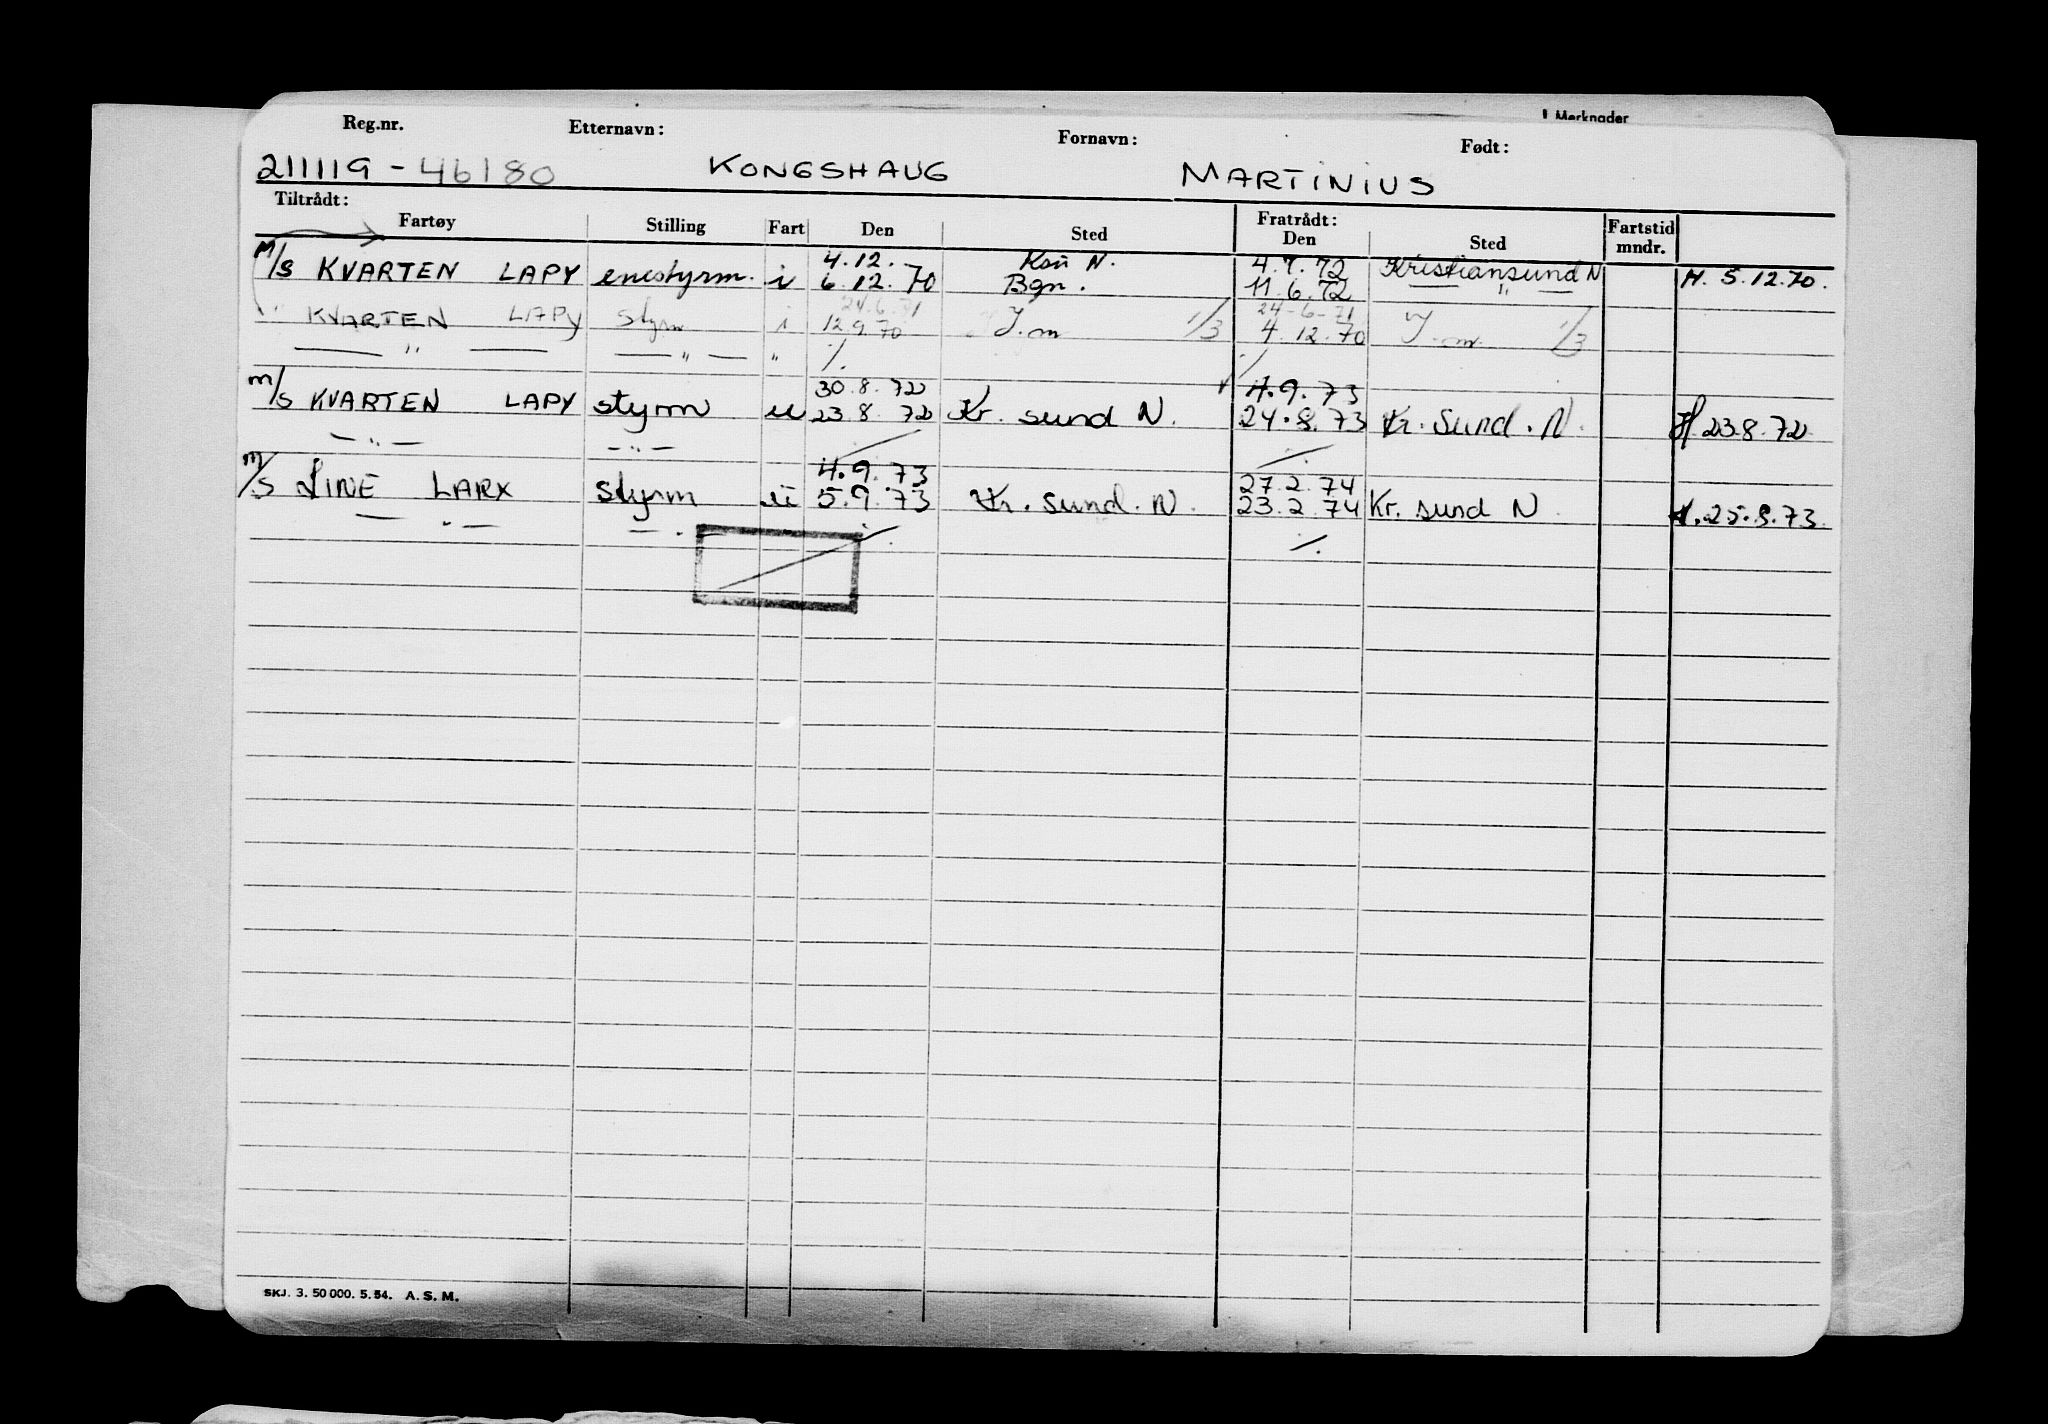 Merknader
Reg.nr. Etternavn: Fornavn: Født:
211119 - 46180 KONGSHAUG MARTINIUS
Tiltrådt: Fratrådt:
Fartøy Stilling Fart Den Sted Den Sted Fartstid mndr.
4.12. Ksu N. 4.7.72 Kristiansund N
M/S KVARTEN LAPY enestyrm. i 6.12.70 Bgn. 11.6.72 — " — H. 5.12.70.
24.6.71 24-6-71
" KVARTEN LAPY styrm i 12.9.70 J.m 1/3 4.12.70 J.m. 1/3
— " — — " — " ./. ./.
30.8.72 4.9.73
m/s KVARTEN LAPY styrm u 23.8.72 Kr. sund N. 24.8.73 Kr. Sund. N. H 23.8.72
— " — — " — ./.
4.9.73 27.2.74
m/s LINE LARX styrm u 5.9.73 Kr. sund. N. 23.2.74 Kr. sund N. H. 25.8.73.
— " — ./. ./.
SKJ. 3. 50 000. 5.54. A. S. M.